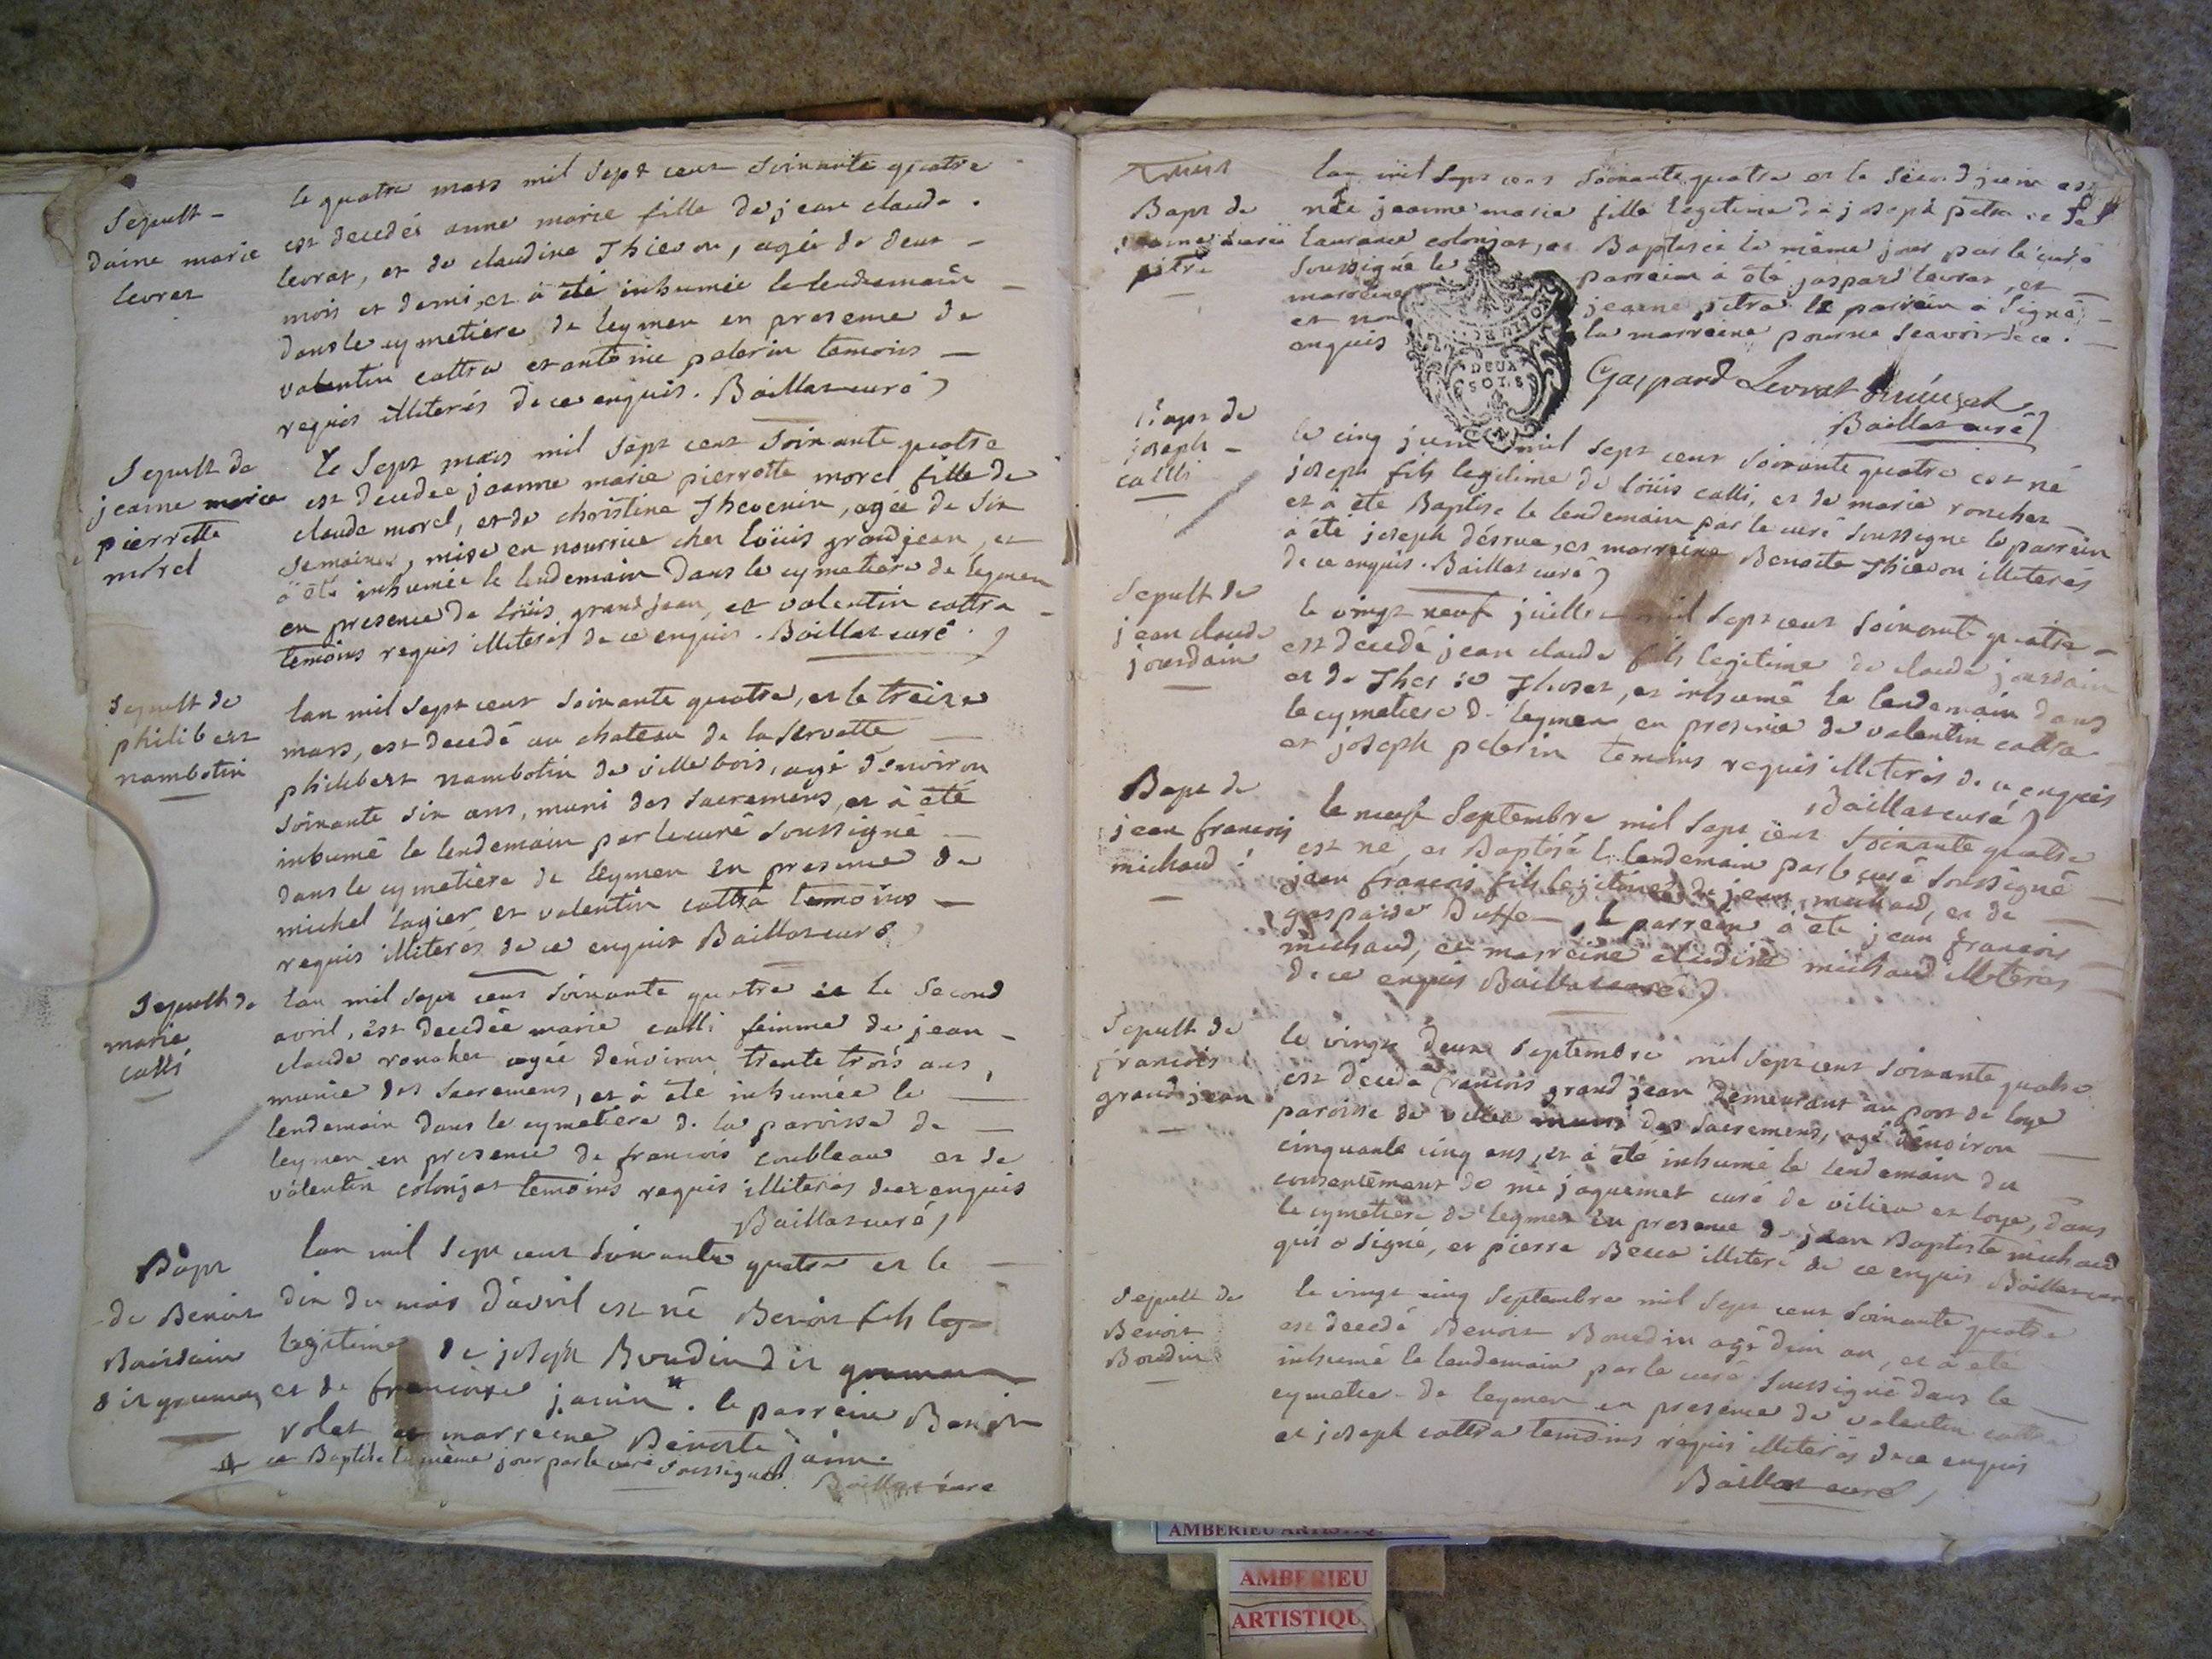 Sepult -
daine marie
levrat
le quatre mars mil sept cent soixante quatre
est decedée anne marie fille de jean claude
levrat, et de claudine Thievon, agée de deux
mois et demi, et à été inhumée le lendemain
dans le cymetiere de leymen en presence de
valentin cottra et antoine pelerin temoins
requis illiterés de ce enquis. Baillat curé
Sepult de
jeanne marie
pierrette
morel
le sept mars mil sept cent soixante quatre
est decedee jeanne marie pierrette morel fille de
claude morel, et de christine Thevenin, agée de six
semaines, mise en nourrice chez loüis grandjean, et
à été inhumée le lendemain dans le cymetiere de leymen
en presence de loüis grandjean, et valentin cottra
temoins requis illiterés de ce enquis. Baillat curé.
Sepult de
philibert
nambotin
lan mil sept cent soixante quatre, et le treize
mars, est decedé au chateau de la servette
philibert nambotin de villebois, agé denviron
soixante six ans, muni des sacremens, et à été
inhumé le lendemain par le curé soussigné
dans le cymetiere de leymen en presence de
michel lagier et valentin cottra temoins
requis illiterés de ce enquis Baillat curé
Sepult de
marie
catti
lan mil sept cent soixante quatre et le second
avril, est decedée marie catti femme de jean
claude ronchet agée denviron trente trois ans,
munie des sacremens, et à été inhumée le
lendemain dans le cymetiere de la paroisse de
leymen en presence de francois coubleau et de
valentin colonjat temoins requis illiterés de ce enquis
Baillat curé
Bapt
de Benoit
Bourdin
dit
lan mil sept cent soixante quatre et le
dix du mois davril est né Benoit fils leg
legitime de joseph Bourdin dit
et de francoise janin. le parrein Benoit
volet et marreine Benoite janin
et Baptisé le même jour par le curé soussigné. Baillat curé
Bapt de
jeanne marie
pitre
lan mil sept cent soixante quatre et le second juin est
née jeanne marie fille legitime de joseph pitra et de
laurance colonjat, et Baptisée le même jour par le curé
soussigné le parrein à été jaspard levrat, et
marreine jeanne pitra le parrein à signé
et non la marreine pour ne scavoir de ce
enquis
DEUX
SOLS
Gaspard Levrat
Baillat curé
Bapt de
joseph
catti
le cinq juin mil sept cent soixante quatre est né
joseph fils legitime de loüis catti, et de marie ronchet
et à été Baptisé le lendemain par le curé soussigné le parrein
à été joseph désrue, et marreine Benoite Thievon illiterés
de ce enquis. Baillat curé
Sepult de
jean claude
jourdain
le vingt neuf juillet mil sept cent soixante quatre
est decedé jean claude fils legitime de claude jourdain
et de Thozet, et inhumé le lendemain dans
le cymetiere de leymen en presence de valentin cottra
et joseph pelerin temoins requis illiterés de ce enquis
Baillat curé
Bapt de
jean francois
michaud
le neuf septembre mil sept cent soixante quatre
est né, et Baptisé le lendemain par le curé soussigné
jean francois fils legitime de jean michaud, et de
gasparde Buffet, le parrein à été jean francois
michaud, et marreine claudine michaud illiterés
de ce enquis Baillat curé
Sepult de
francois
grandjean
le vingt deux septembre mil sept cent soixante quatre
est decedé francois grandjean demeurant au port de loye
paroisse de villieu muni des sacremens, agé denviron
cinquante cinq ans, et à été inhumé le lendemain du
consentement de me jaquemet curé de vilieu et loye, dans
le cymetiere de leymen en presence de jean Baptiste michaud
qui à signé, et pierre Becca illiteré de ce enquis Baillat curé
Sepult de
Benoit
Bourdin
le vingt cinq septembre mil sept cent soixante quatre
est decedé Benoit Bourdin agé dun an, et à été
inhumé le lendemain par le curé soussigné dans le
cymetiere de leymen en presence de valentin cottra
et joseph cottra temoins requis illiterés de ce enquis
Baillat curé
AMBERIEU ARTISTIQ
AMBERIEU
ARTISTIQU